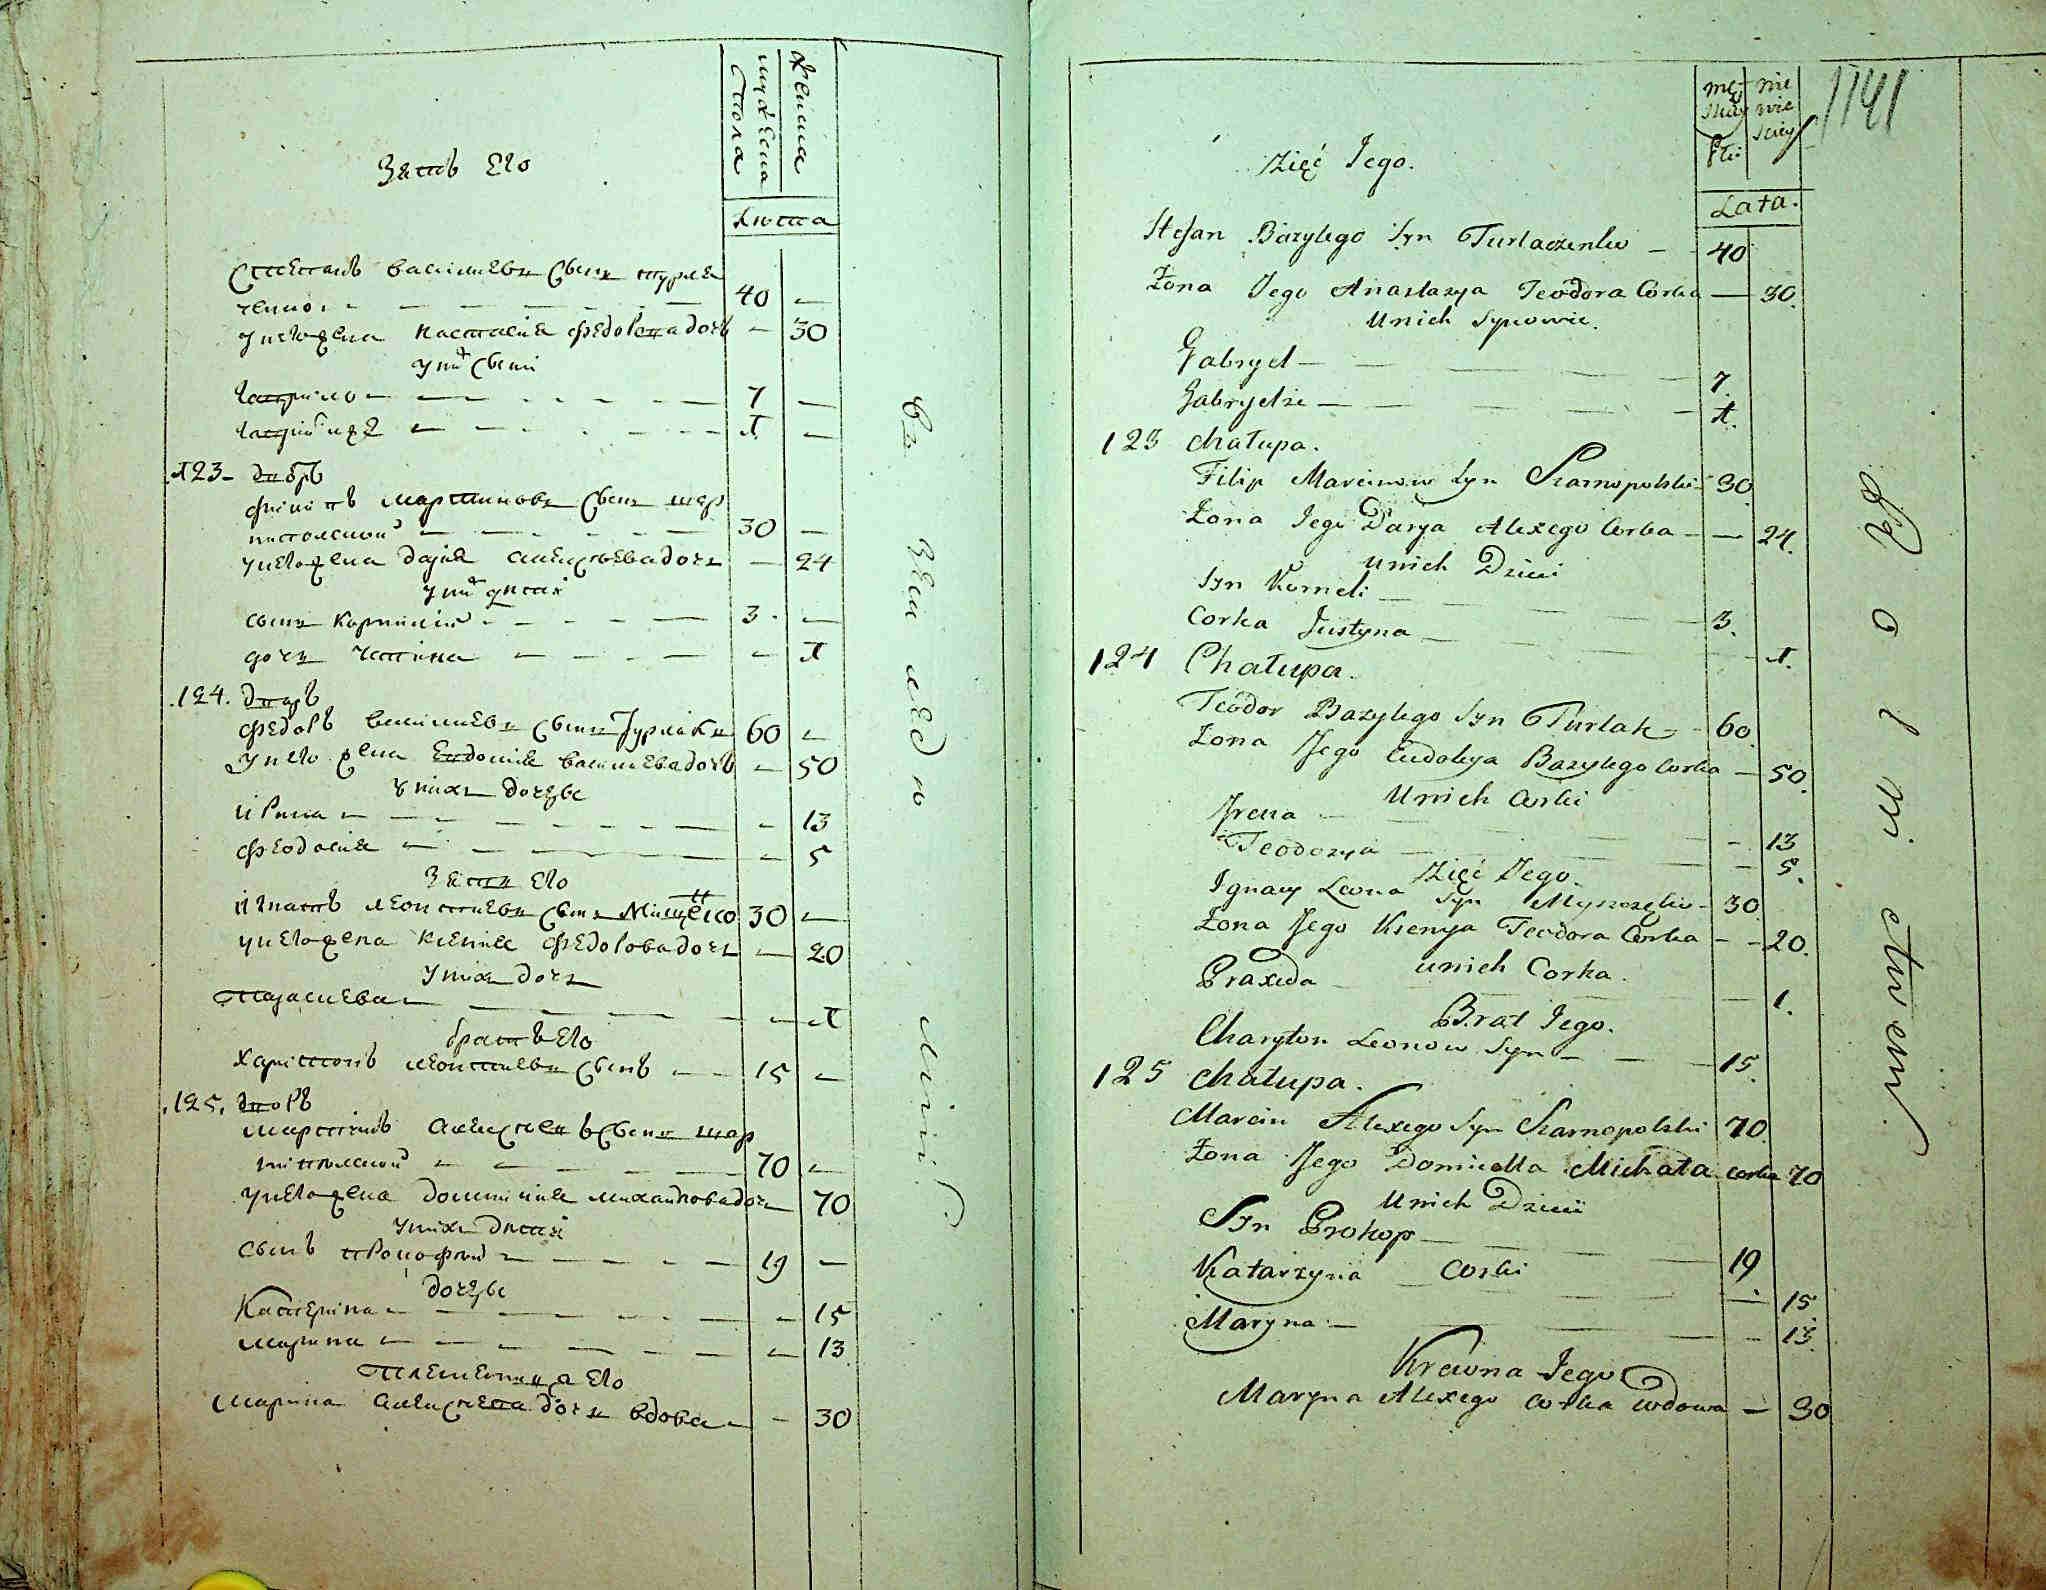 мужеска
пола
женска
Зять Его
Лѣта
Степанъ василиевъ Сынъ турла
ченко 40
унего жена настасия федорова дочь 30
у них Сыни
гаврило 7
1
123 дворъ
филипъ мартиновъ Сынъ шар
пполский 30
унего жена дарія алексѣева дочъ 24
у них дѣти
сынъ корнилій 3
дочъ 1
124. дворъ
федоръ василиевъ Сынъ Турлакъ 60
унего жена Евдокия василиева дочъ 50
у нихъ дочери
ирина 13
феодосия 5
Зять Его
игнатъ леонтиевъ Сынъ 30
унего жена ксения федорова дочъ 20
у нихъ дочъ
1
братъ Его
харитонъ леонтиевъ Сынъ 15
125. дворъ
мартинъ алексѣевъ Сынъ шар
70
унего жена михайлова дочъ 70
унихъ дѣти
Сынъ прокофий 19
дочери
катерина 15
марина 13
племенница Его
марина алексѣева дочъ вдова 30
въ земледѣ лии
męz
kiey
płci
nie
wie
sciey
1141
zięć Jego.
Lata.
Stefan Bazylego Syn Turlaczenko 40
Żona Jego Anastazya Teodora Corka 30.
Unich Synowie.
Gabryel 7.
1.
123 Chałupa.
Filip Marcinow Syn Szarnopolski 30
Żona Jego Darya Alexego Corka 24.
unich Dzieci
Syn Korneli 3.
Corka Justyna 1.
124 Chałupa.
Teodor Bazylego Syn Turlak 60.
Żona Jego Eudokya Bazylego Corka 50.
Unich Corki
Irena 13
Teodozya 5.
zięć Jego.
Ignacy Leona Syn 30
Żona Jego Ksenya Teodora Corka 20.
unich Corka.
Praxeda 1.
Brat Jego.
Charyton Leonow Syn 15.
125 Chałupa.
Marcin Alexego Syn Szarnopolski 70.
Żona Jego Domicella Michała corka 70
Unich Dzieci
Syn Prokop 19.
Corki
Katarzyna 15
Maryna 13.
Krewna Jego
Maryna Alexego Corka wdowa 30
Rolnictwem